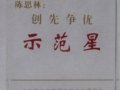 陈思林：
创先争优
示范星